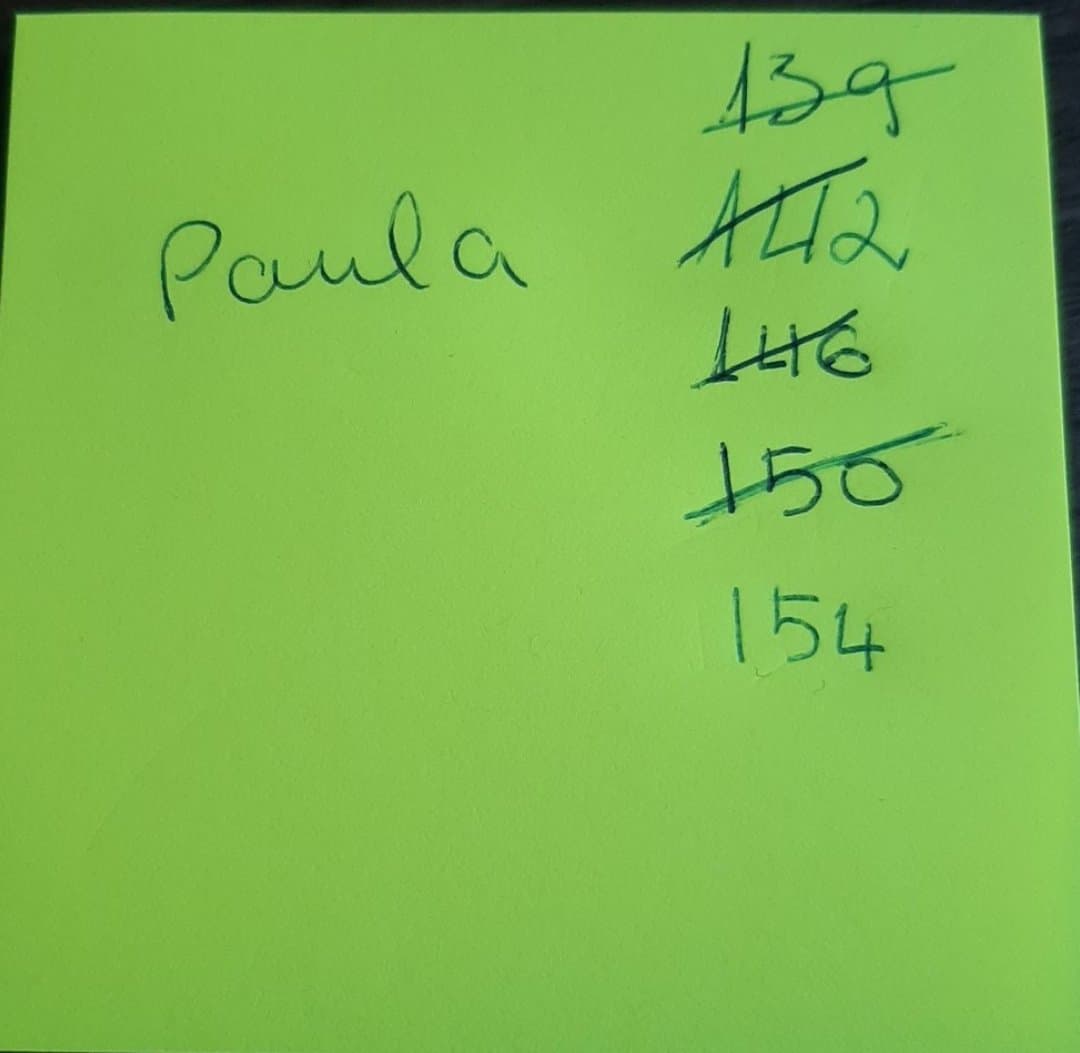 139
142
Paula
146
150
154